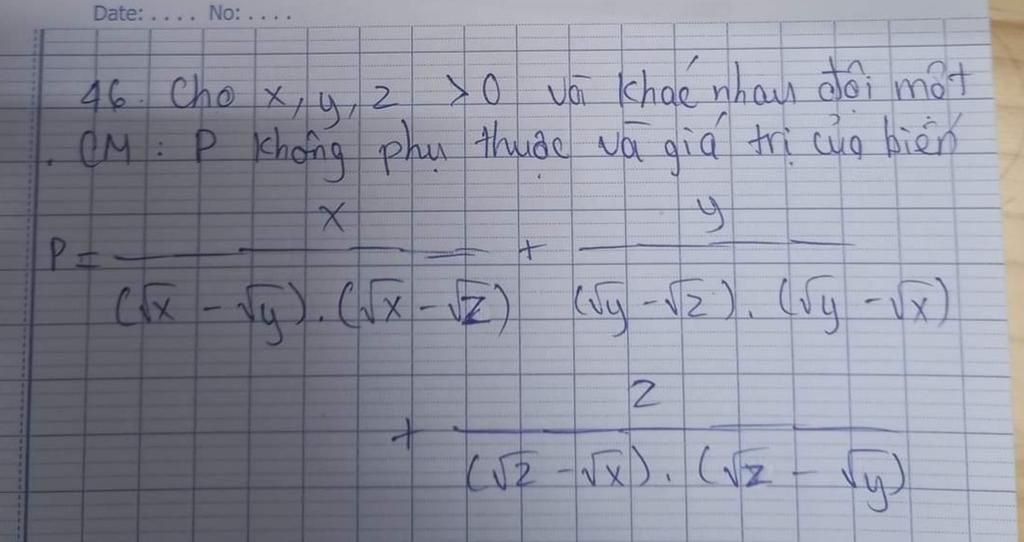 Date: .... No: ....
46. Cho x, y, z > 0 và khác nhau đôi một
. CM : P không phụ thuộc và giá trị của biến
P = x / (√x - √y) . (√x - √z) + y / (√y - √z) . (√y - √x)
+ z / (√z - √x) . (√z - √y)